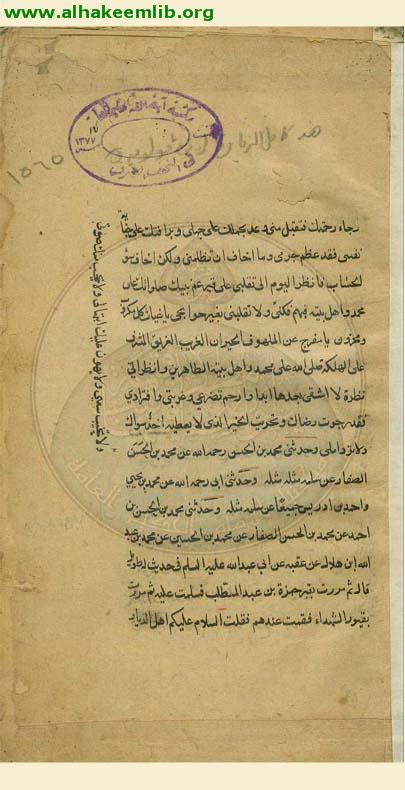 www.alhakeemlib.org
مكتبة آية الله
١٣٧٧
النجف
هذا كامل الزيارات لابن قولويه
١٥٦٥
رجاء رحمتك فتقبل مني وعد بحلمك على جهلي وبرافتك على جناية
نفسي فقد عظم جرمي وما اخاف ان تظلمني ولكن اخاف سوء
الحساب فانظر اليوم الى تقلبي على قبر عم نبيك صلواتك على
محمد واهل بيته فبهم فكني ولا تخيب سعيي ولا يهون عليك ابتهالي ولا تحجب منك صوتي
ولا تقلبني بغير حوائجي يا غياث كل مكروب
ومحزون يا مفرج عن الملهوف الحيران الغريب الغريق المشرف
على الهلكة صلى الله على محمد واهل بيته الطاهرين وانظر الي
نظرة لا اشقى بعدها ابدا وارحم تضرعي وغربتي وانفرادي
فقد رجوت رضاك وتحريت الخير الذي لا يعطيه احد سواك
ولا ترد املي وحدثني محمد بن الحسن رحمه الله عن محمد بن الحسن
الصفار عن سلمة مثله وحدثني ابي رحمه الله عن محمد بن يحيى
واحمد بن ادريس جميعا عن سلمة مثله وحدثني محمد بن الحسن بن
احمد عن محمد بن الحسن الصفار عن محمد بن الحسين عن محمد بن عبد
الله ابن هلال عن عقبه عن ابي عبد الله عليه السلم في حديث له طويل
قال ثم مررت بقبر حمزة بن عبد المطلب فسلمت عليه ثم مررت
بقبور الشهداء فقمت عندهم فقلت السلام عليكم اهل الديار